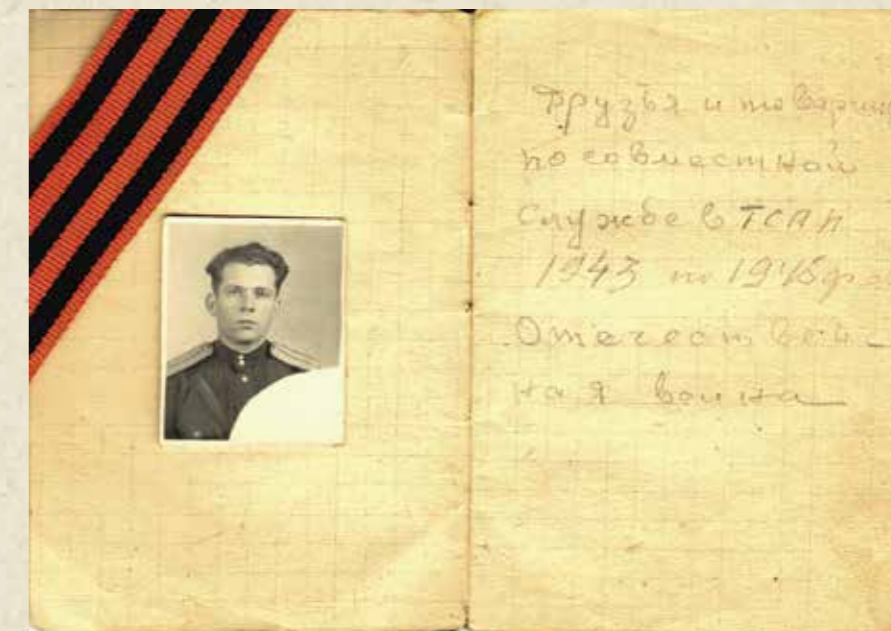 Друзья и товарищ
по совместной
службе в ТСАП
1943 по 1945
Отечествен-
ная война